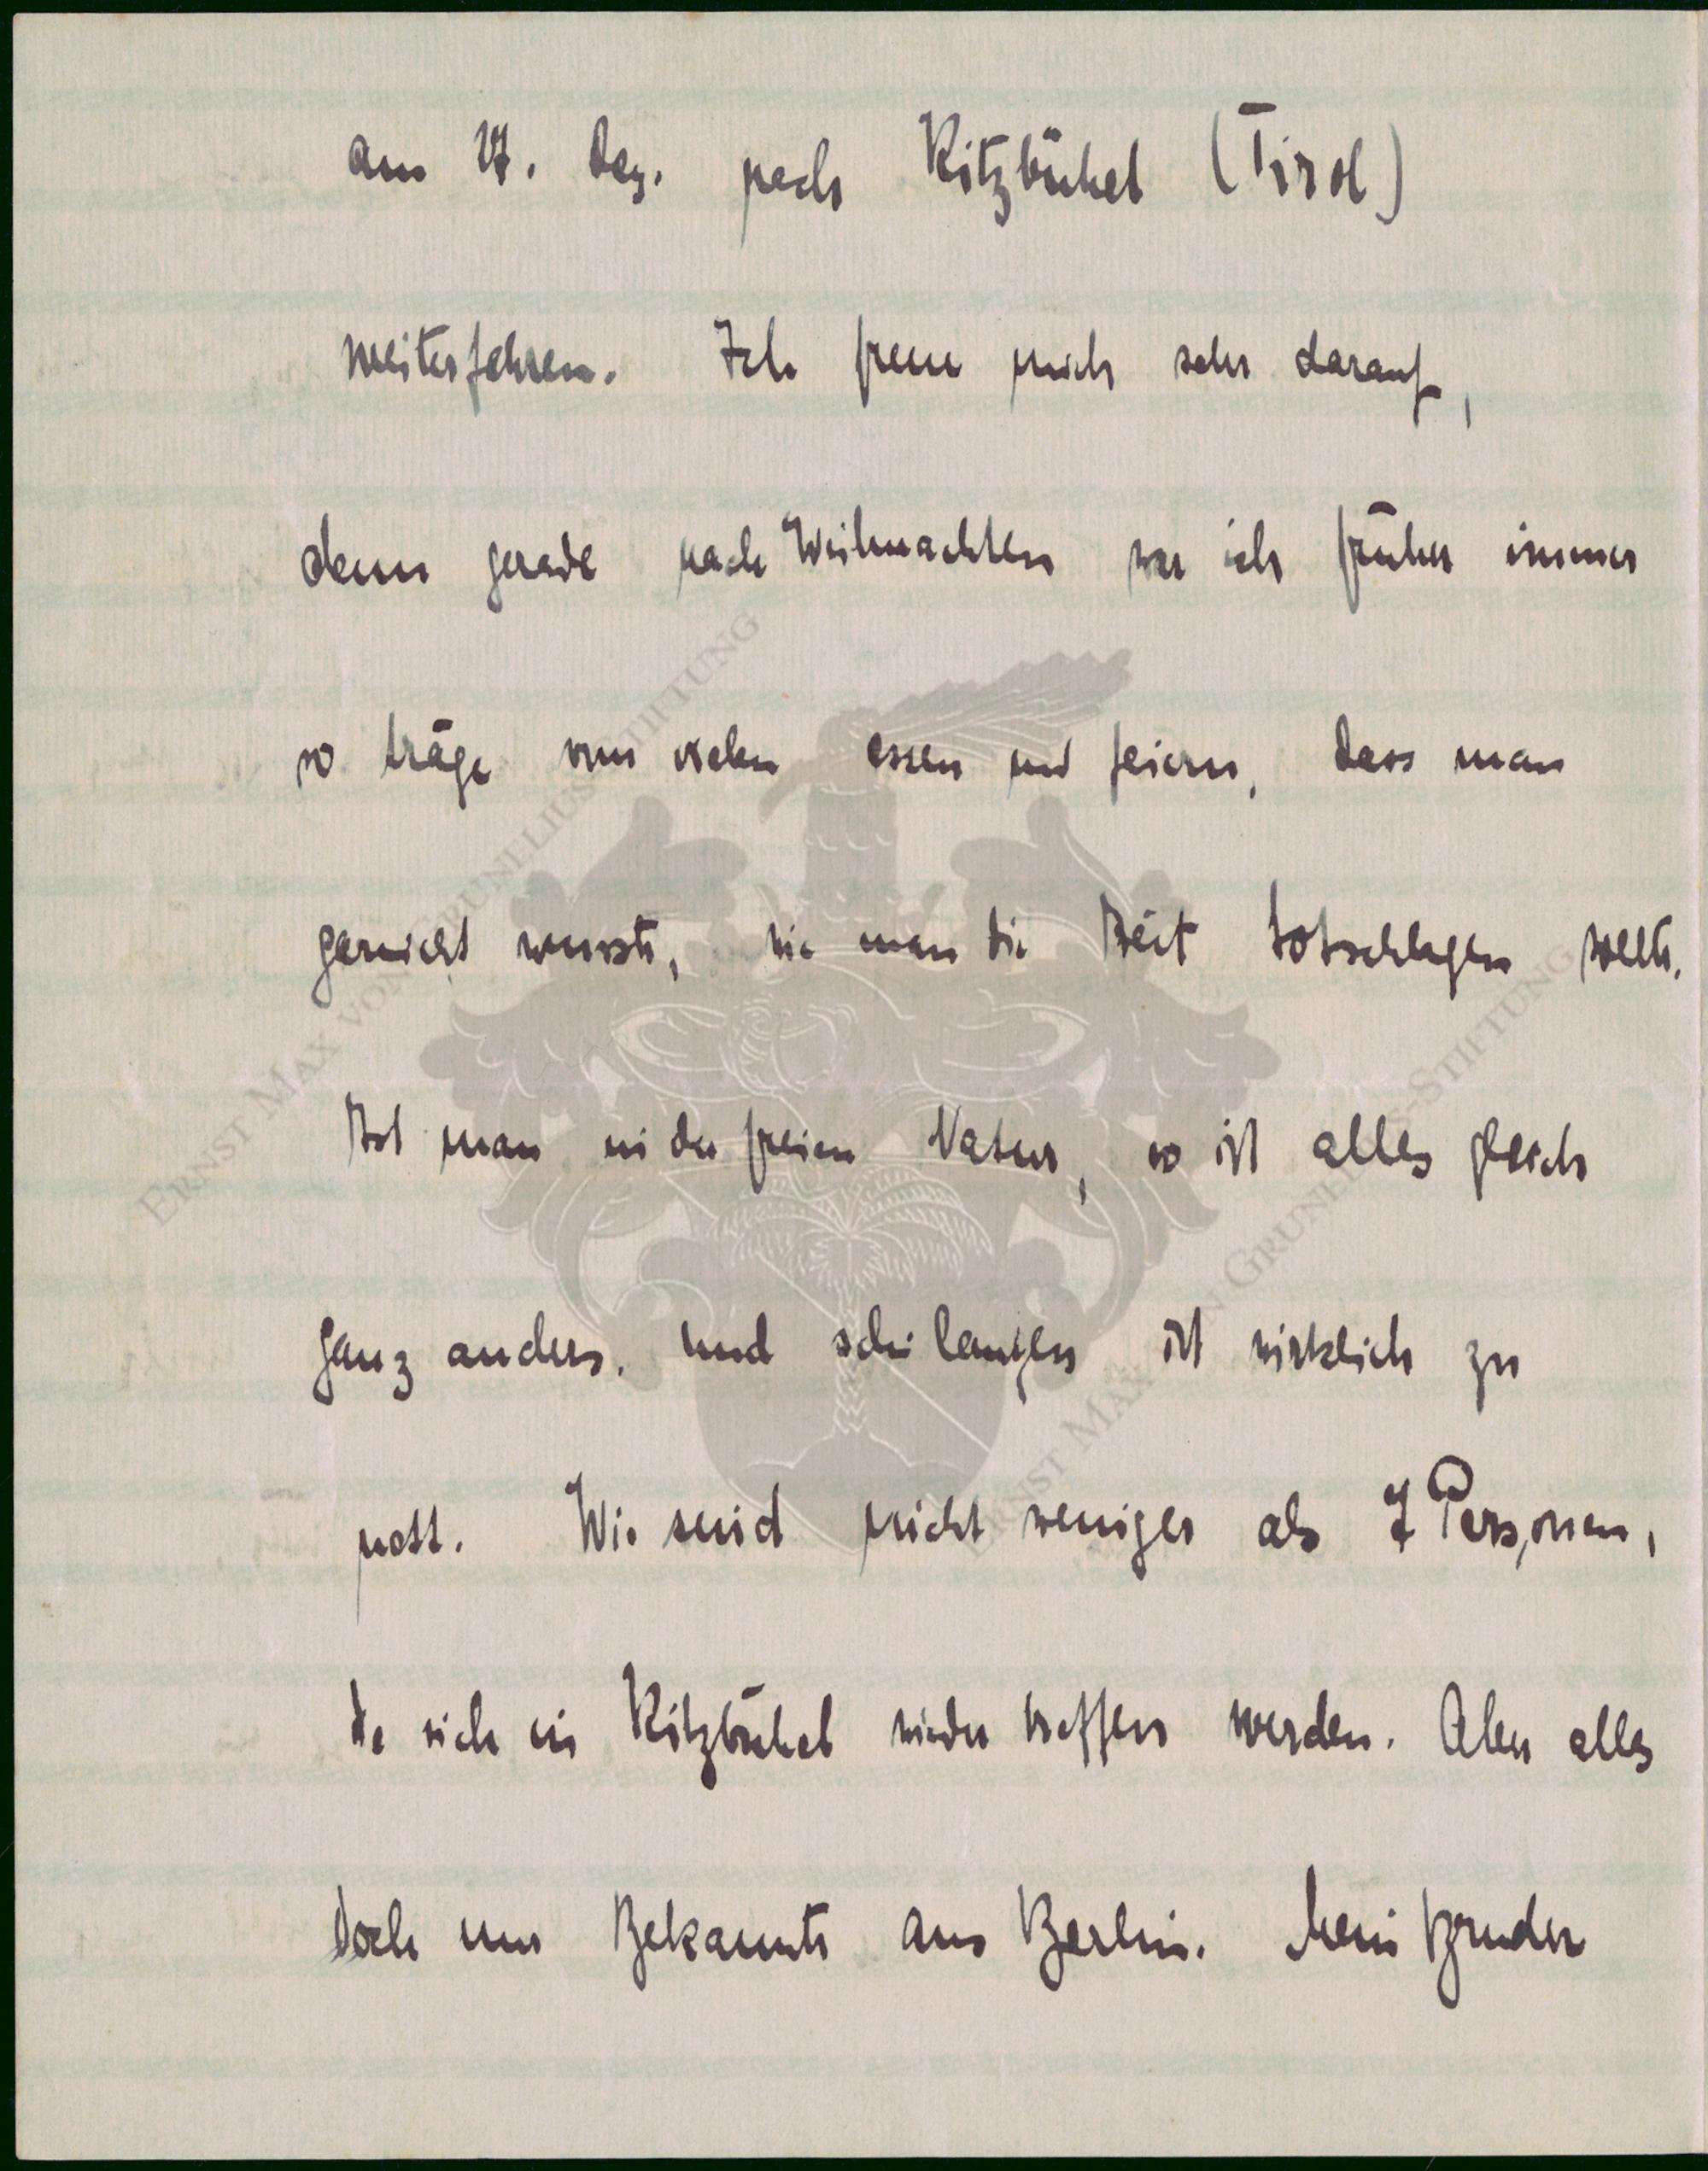 am 27. Dez. nach Kitzbühel (Tirol)
weiterfahren. Ich freue mich sehr darauf,
denn gerade nach Weihnachten war ich früher immer
so träge vom vielen essen und feiern, dass man
garnicht wusste, wie man die Zeit totschlagen sollte.
Ist man in der freien Natur, so ist alles gleich
ganz anders. Und schi laufen ist wirklich zu
nett. Wir sind nicht weniger als 7 Personen,
die sich in Kitzbühel wieder treffen werden. Aber alles
doch nur Bekannte aus Berlin. Mein Bruder
ERNST MAX VON GRUNELIUS-STIFTUNG
ERNST MAX VON GRUNELIUS-STIFTUNG